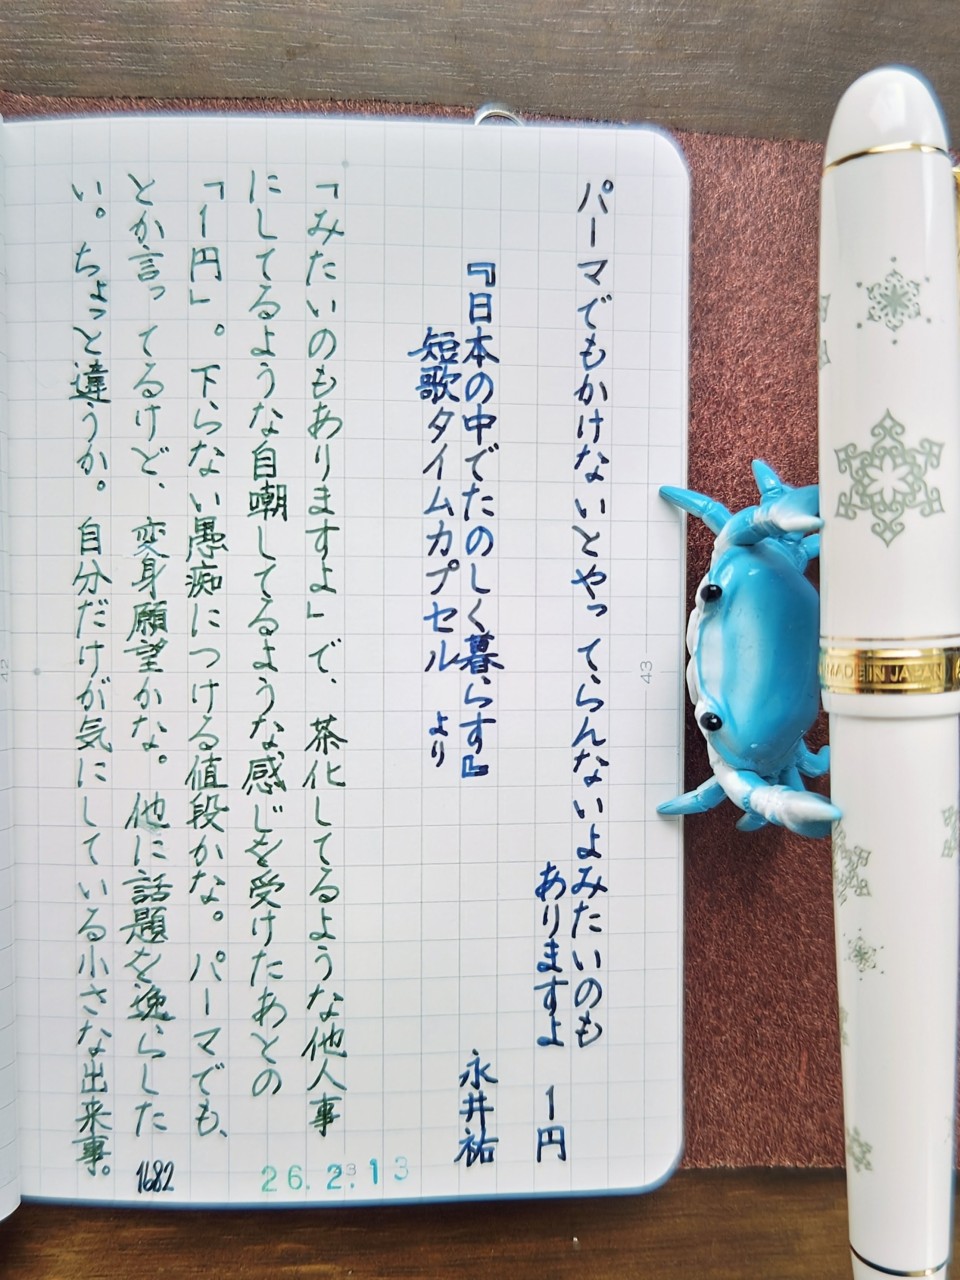 パーマでもかけないとやってらんないよみたいのも
ありますよ　1円
『日本の中でたのしく暮らす』
短歌タイムカプセル　より
永井祐
「みたいのもありますよ」で、茶化してるような他人事
にしてるような自嘲してるような感じを受けたあとの
「1円」。下らない愚痴につける値段かな。パーマでも、
とか言ってるけど、変身願望かな。他に話題を逸らした
い。ちょっと違うか。自分だけが気にしている小さな出来事。
1682
26.2.13
43
MADE IN JAPAN